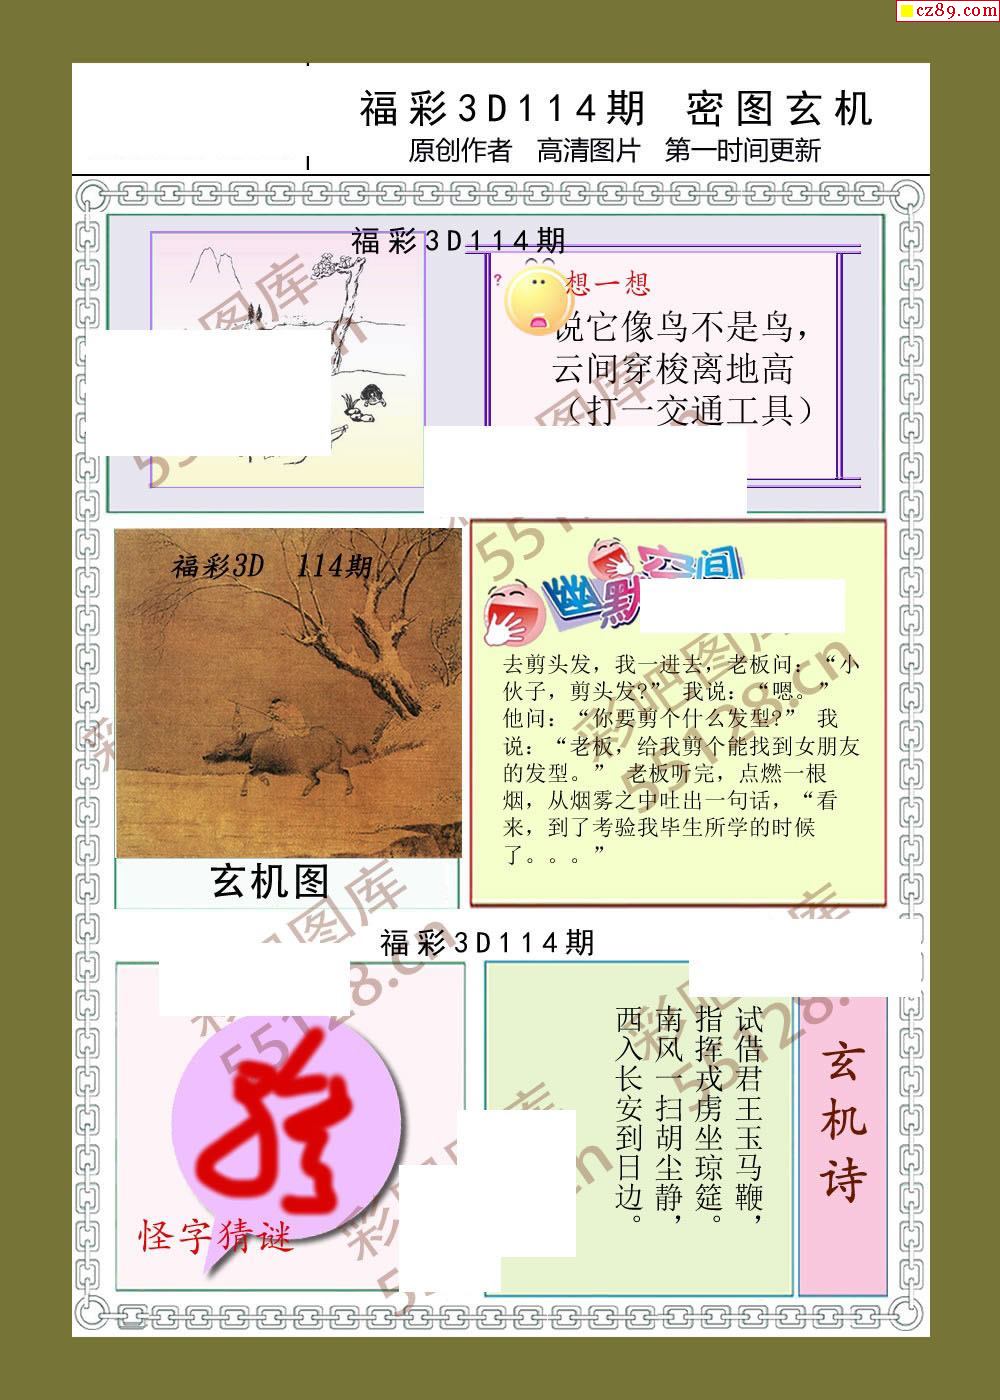 cz89.com
福彩3D114期 密图玄机
原创作者 高清图片 第一时间更新
福彩3D114期
?
想一想
说它像鸟不是鸟，
云间穿梭离地高
（打一交通工具）
福彩3D 114期
玄机图
幽默空间
去剪头发，我一进去，老板问：“小
伙子，剪头发?” 我说：“嗯。”
他问：“你要剪个什么发型?” 我
说：“老板，给我剪个能找到女朋友
的发型。” 老板听完，点燃一根
烟，从烟雾之中吐出一句话，“看
来，到了考验我毕生所学的时候
了。。。”
福彩3D114期
怪字猜谜
试借君王玉马鞭，
指挥戎虏坐琼筵。
南风一扫胡尘静，
西入长安到日边。
玄机诗
彩吧图库
55128.cn